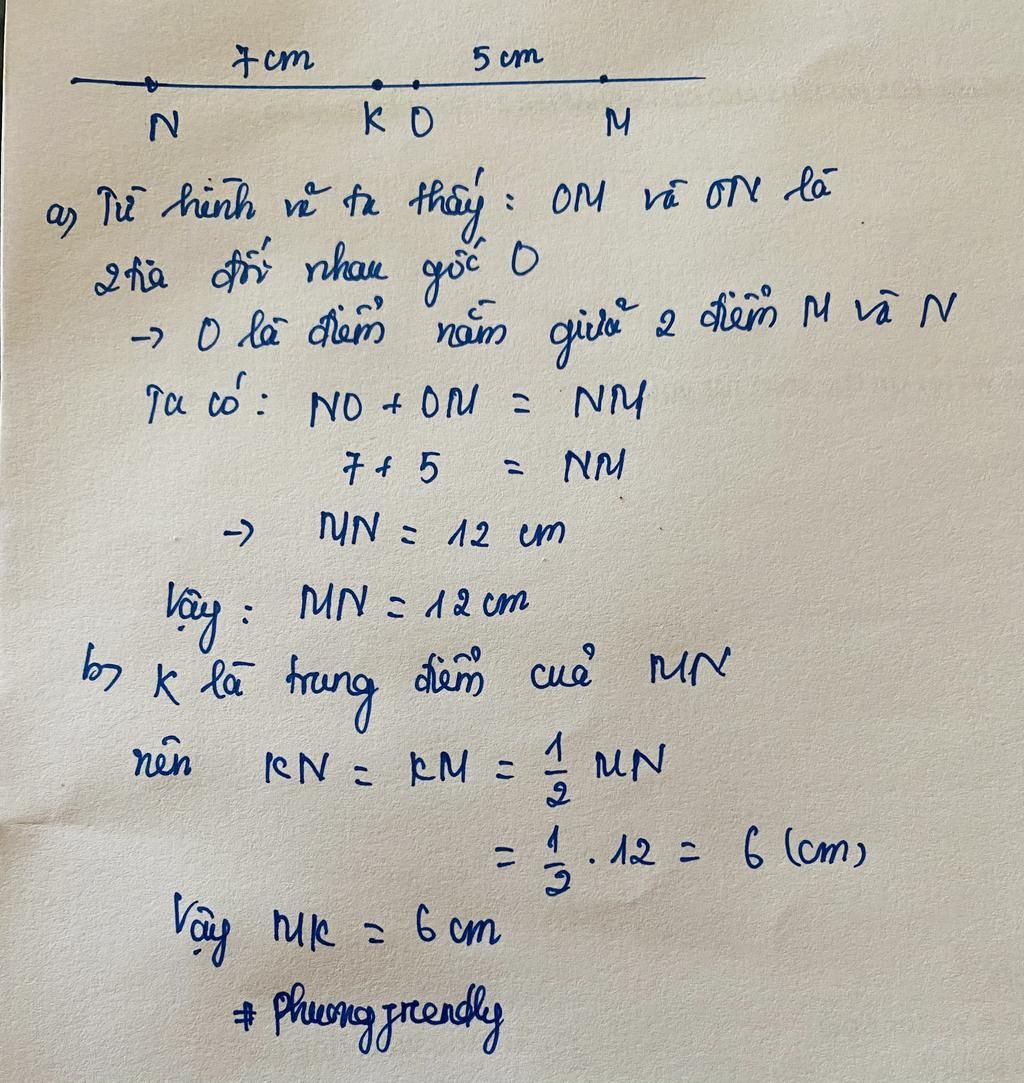 7 cm 5 cm
N K O M
a) Từ hình vẽ ta thấy: OM và ON là
2 tia đối nhau gốc O
→ O là điểm nằm giữa 2 điểm M và N
Ta có: NO + OM = NM
7 + 5 = NM
→ MN = 12 cm
Vậy: MN = 12 cm
b) K là trung điểm của MN
nên KN = KM = 1/2 MN
= 1/2 . 12 = 6 (cm)
Vậy MK = 6 cm
# Phuongfriendly